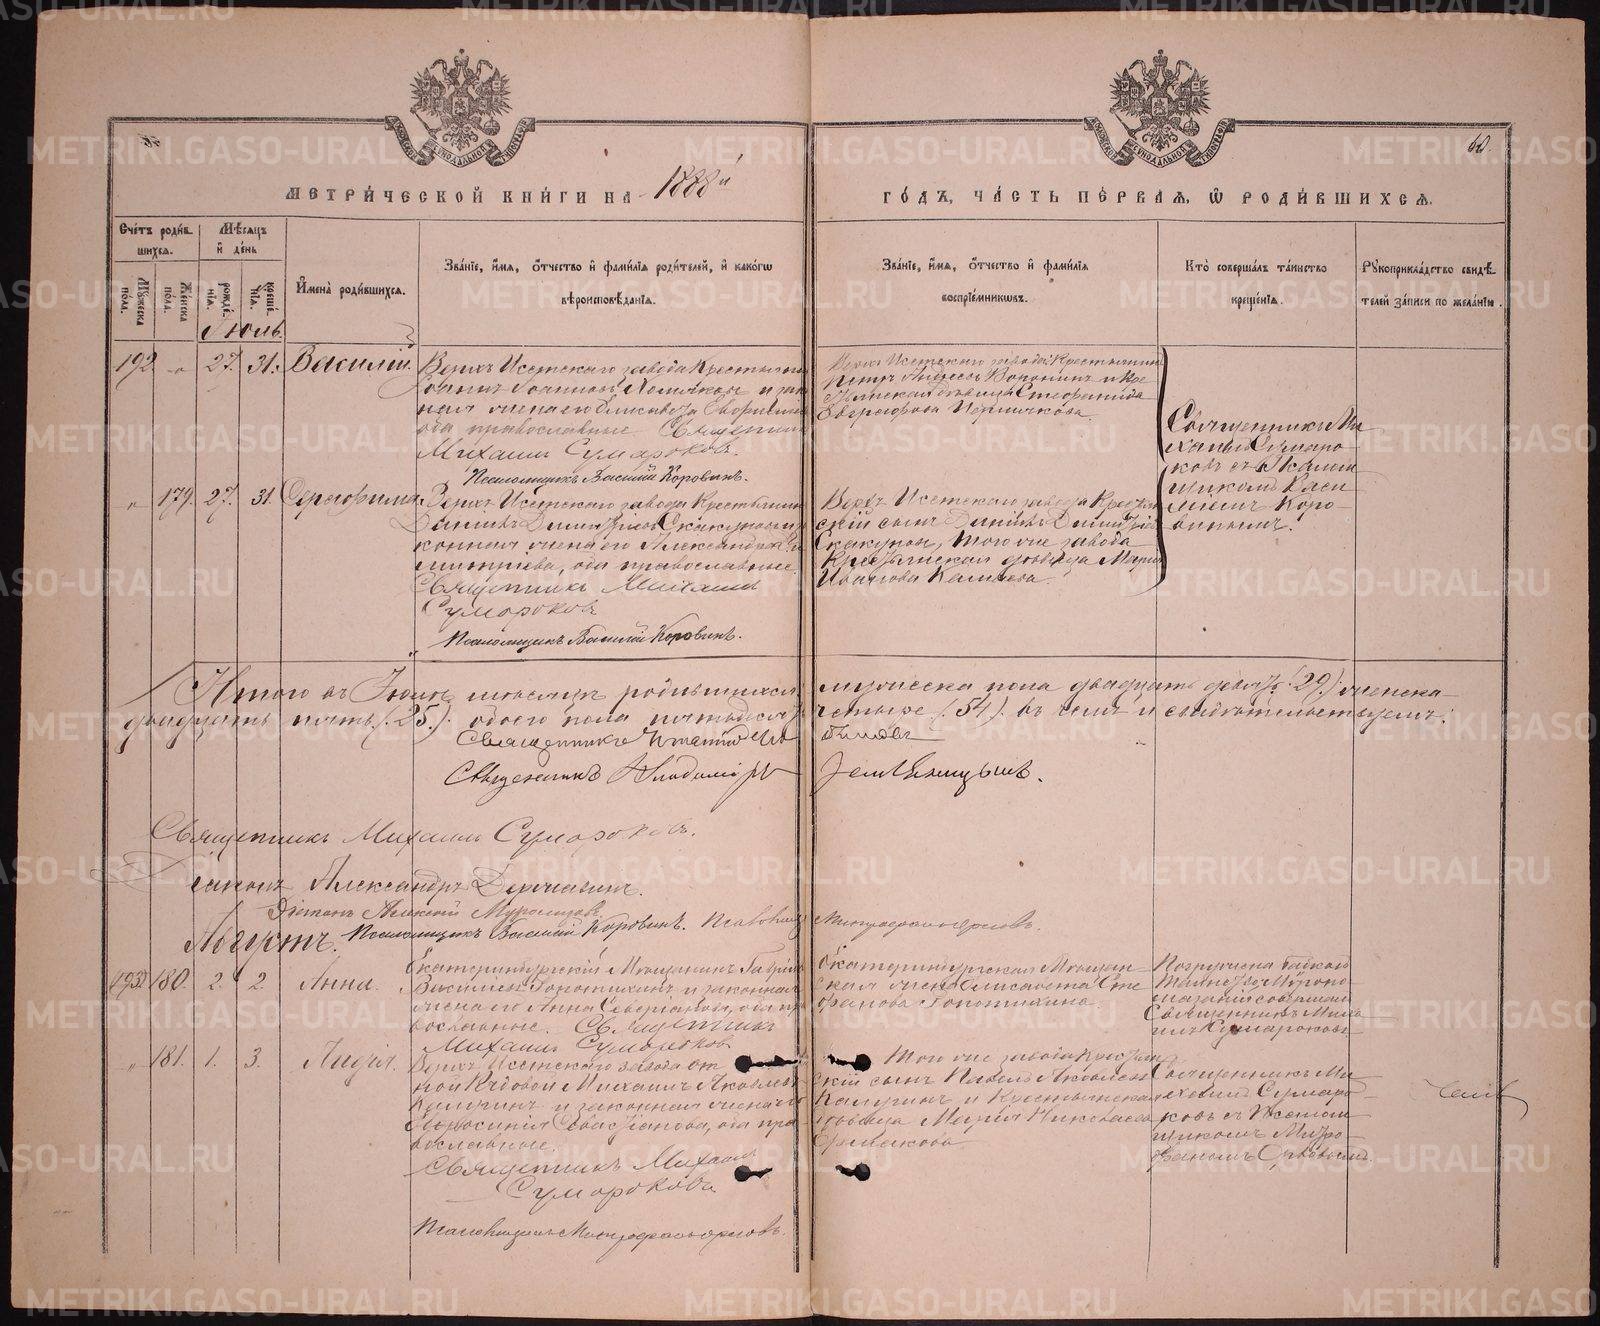 МЕТРИЧЕСКОЙ КНИГИ НА 1888й ГОДЪ, ЧАСТЬ ПЕРВАЯ, Ѡ РОДИВШИХСЯ.
60
Счетъ родившихся.
Мужеска пола.
Женска пола.
Мѣсяцъ и день
рожденія.
крещенія.
Имена родившихся.
Званіе, имя, отчество и фамилія родителей, и какого вѣроисповѣданія.
Званіе, имя, отчество и фамилія воспріемниковъ.
Кто совершалъ таинство крещенія.
Рукоприкладство свидѣтелей записи по желанію.
Іюль.
192 „ 27. 31. Василій.
Верхъ Исетскаго завода Крестьянинъ
и законная жена его Елисавета
оба православные Священникъ
Михаилъ Сумароковъ.
Псаломщикъ Василій Коровинъ.
Верхъ Исетскаго завода Крестьянинъ
Петръ Воронинъ и Кре
стьянская дѣвица Стефанида
Священникъ Ми
хаилъ Сумаро
ковъ съ Псалом
щикомъ Васи
ліемъ Коро-
винымъ.
„ 179. 27. 31. Серафима.
Верхъ Исетскаго завода Крестьянинъ
Даніилъ Димитріевъ Скакунъ и за
конная жена его Александра Ди
митріева, оба православные.
Священникъ Михаилъ
Сумароковъ
Псаломщикъ Василій Коровинъ.
Верхъ Исетскаго завода Крестьян
скій сынъ Даніилъ Димитріевъ
Скакунъ, того же завода
Крестьянская дѣвица Марія
Иванова
Итого въ Іюлѣ мѣсяцѣ родившихся мужеска пола двадцать девять (29.) женска
двадцать пять (25.) обоего пола пятьдесятъ четыре (54). въ чемъ и свидѣтельствуемъ:
Священникъ Игнатій
Священникъ Владиміръ Земляницынъ.
Священникъ Михаилъ Сумароковъ.
Діаконъ Александръ Державинъ.
Діаконъ Алексій
Псаломщикъ Василій Коровинъ. Псаломщикъ Митрофанъ Орловъ.
Августъ.
193 180. 2. 2. Анна.
Екатеринбургскій Мѣщанинъ Гавріилъ
Васильевъ и законная
жена его Анна Северіанова, оба пра
вославные. Священникъ
Михаилъ Сумароковъ
Екатеринбургская Мѣщан
ская жена Елисавета Сте
фанова
Погружена бабкою
Священникъ Миха
илъ Сумароковъ
„ 181. 1. 3. Лидія.
Верхъ Исетскаго завода от
Михаилъ Яковлевъ
Калугинъ и законная жена его
Евфросинія Севастіанова, оба пра
вославные.
Священникъ Михаилъ
Сумароковъ
Псаломщикъ Митрофанъ Орловъ.
Того же завода Крестьян
скій сынъ Павелъ Яковлевъ
Калугинъ и Крестьянская
дѣвица Марія Николаева
Ермакова
Священникъ Ми
хаилъ Сумаро-
ковъ съ Псалом
щикомъ Митро
фаномъ Орловымъ
METRIKI.GASO-URAL.RU